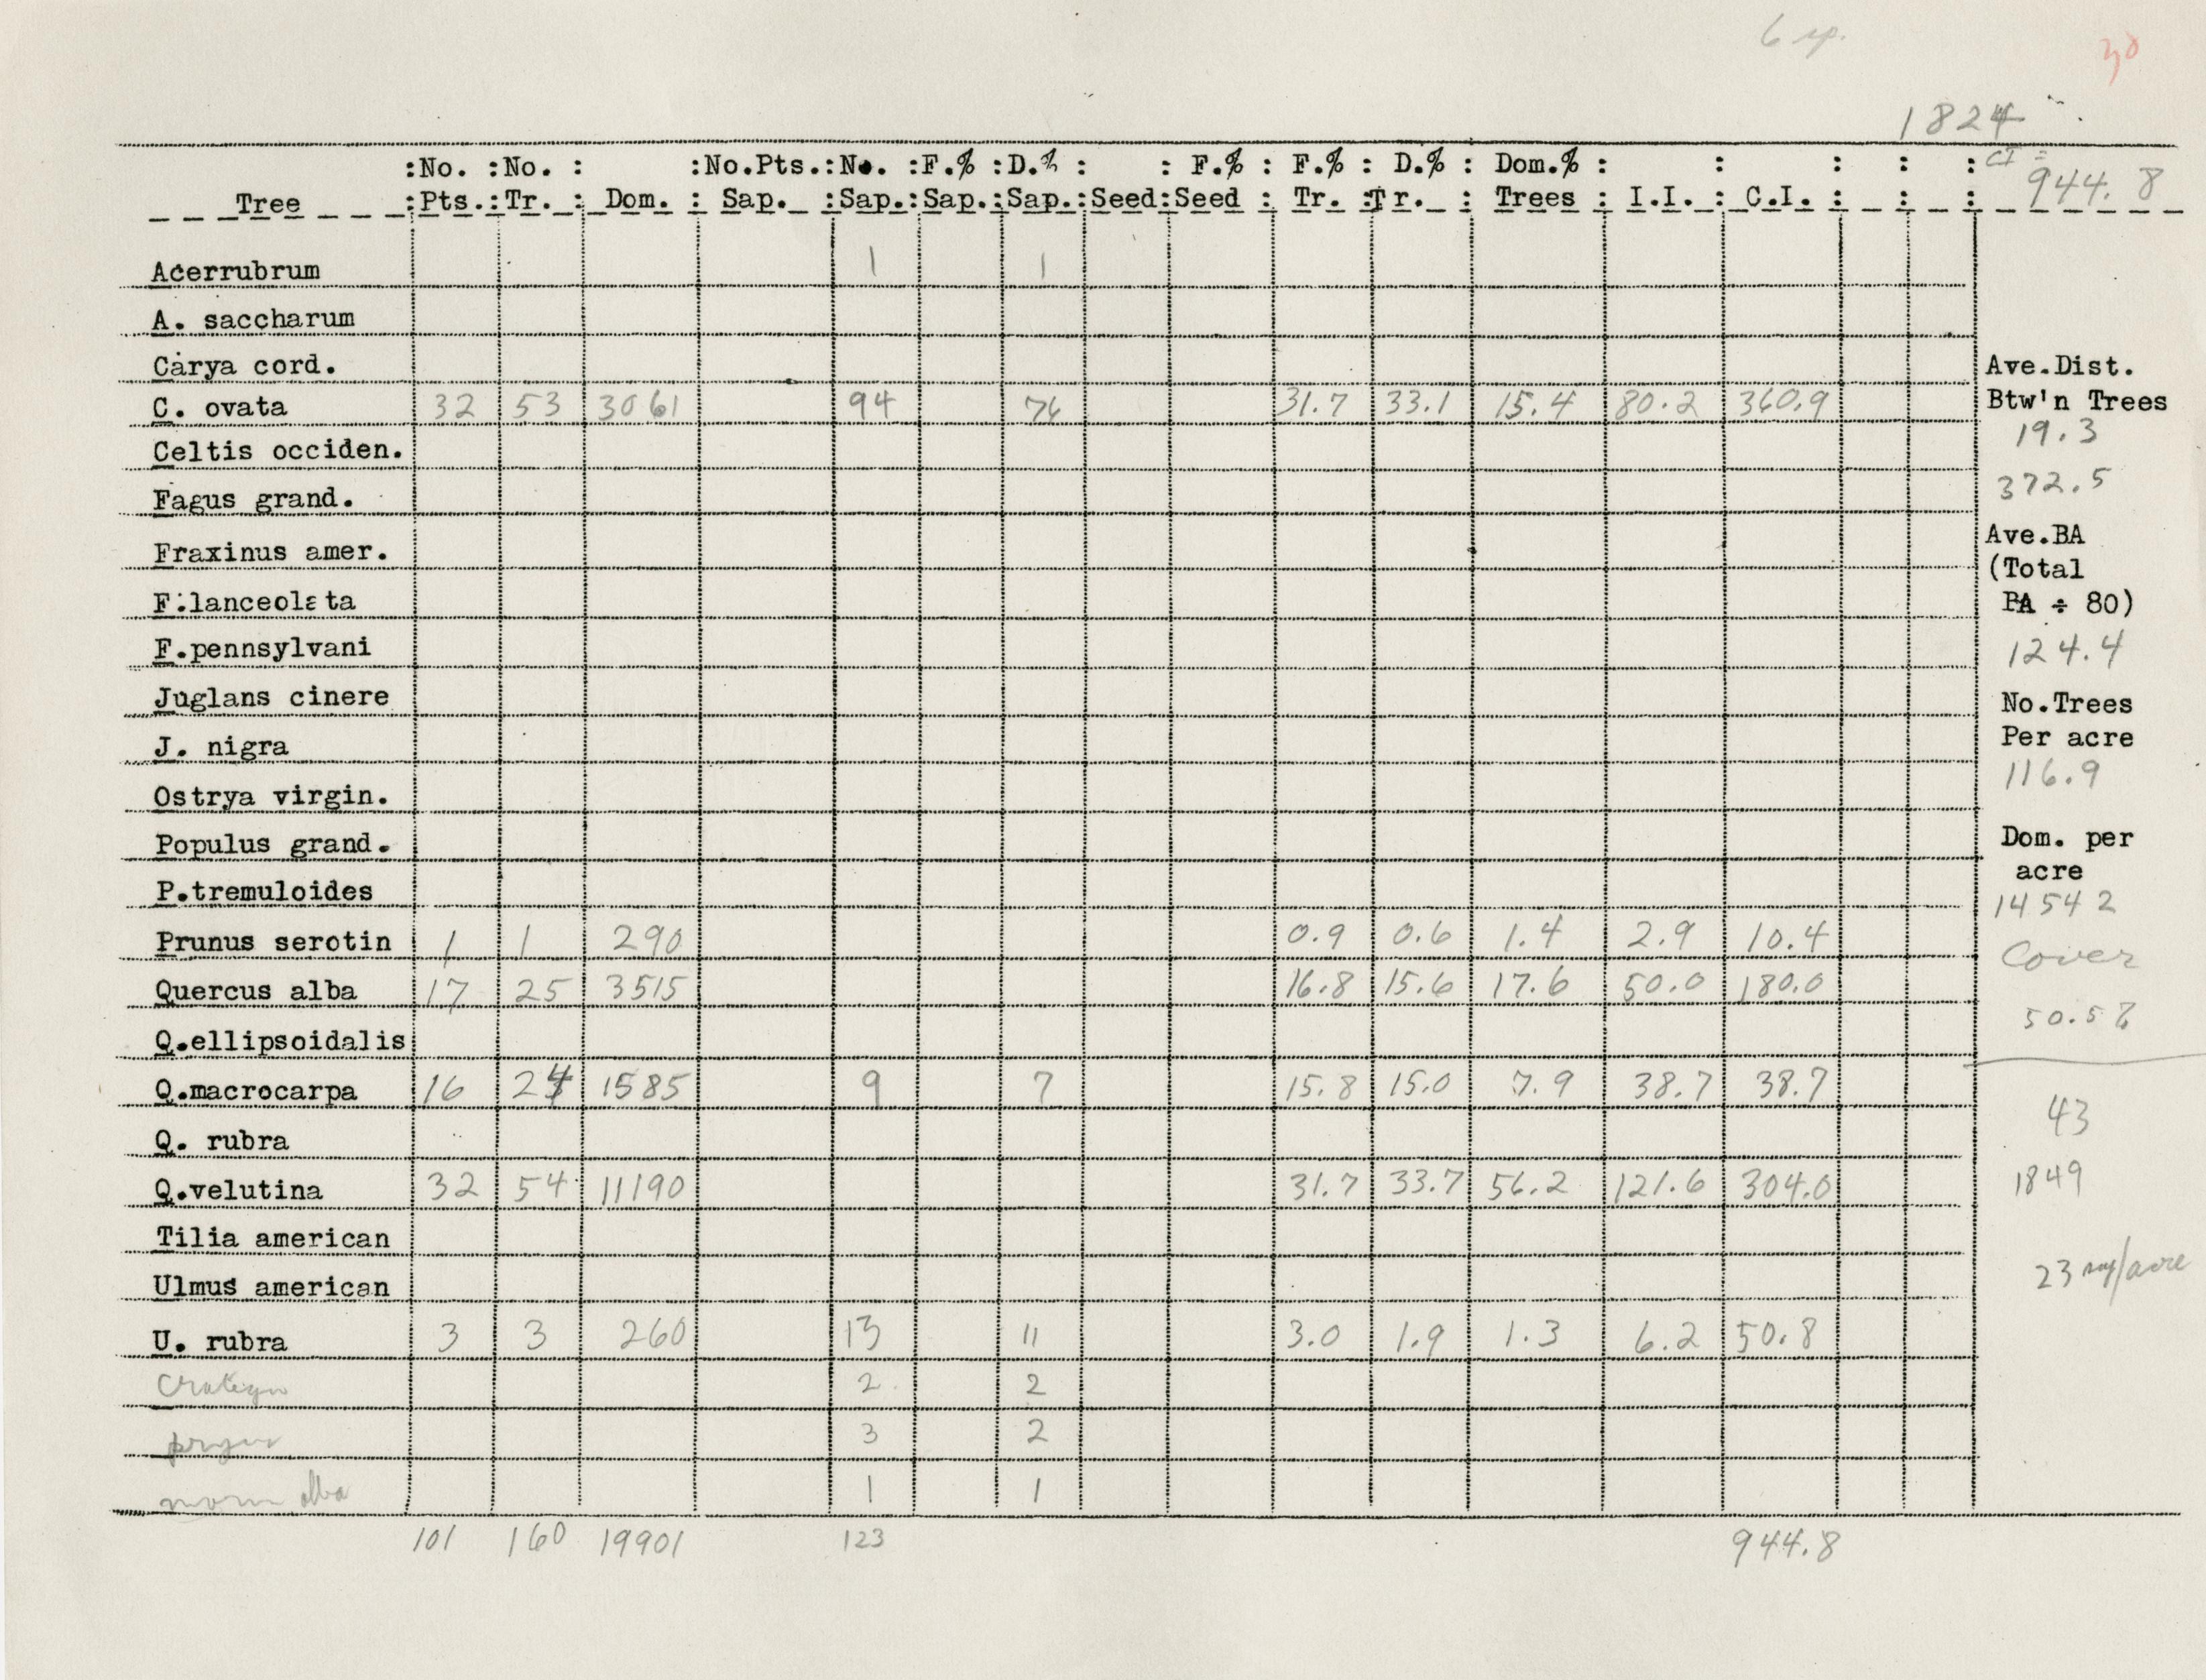 6 sp.
30
1824
:No. :No. : :No.Pts.:No. :F.% :D.% : : F.% : F.% : D.% : Dom.% : : : : : CI =
Tree :Pts.:Tr. : Dom. : Sap. :Sap.:Sap.:Sap.:Seed:Seed : Tr. :Tr. : Trees : I.I. : C.I. : : : 944.8
Acerrubrum 1 1
A. saccharum
Carya cord.
Ave.Dist.
C. ovata 32 53 3061 94 76 31.7 33.1 15.4 80.2 360.9
Btw'n Trees
19.3
Celtis occiden.
372.5
Fagus grand.
Ave.BA
Fraxinus amer.
(Total
F.lanceolata
BA ÷ 80)
F.pennsylvani
124.4
Juglans cinere
No.Trees
Per acre
J. nigra
116.9
Ostrya virgin.
Dom. per
Populus grand.
acre
P.tremuloides
14542
Prunus serotin 1 1 290 0.9 0.6 1.4 2.9 10.4
Cover
Quercus alba 17 25 3515 16.8 15.6 17.6 50.0 180.0
50.58
Q.ellipsoidalis
Q.macrocarpa 16 24 1585 9 7 15.8 15.0 7.9 38.7 38.7
43
Q. rubra
Q.velutina 32 54 11190 31.7 33.7 56.2 121.6 304.0
1849
Tilia american
23 /acre
Ulmus american
U. rubra 3 3 260 13 11 3.0 1.9 1.3 6.2 50.8
2 2
3 2
alba 1 1
101 160 19901 123 944.8